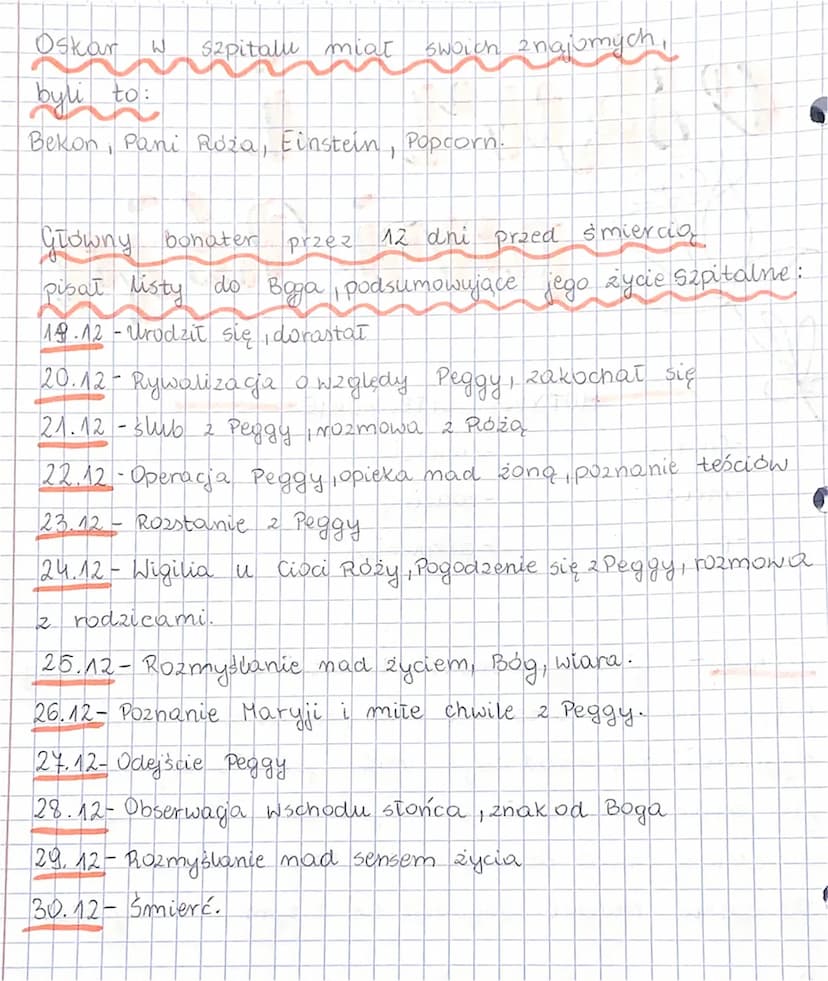 Oskar w szpitalu miał swoich znajomych,
byli to:
Bekon, Pani Róża, Einstein, Popcorn.
Główny bohater przez 12 dni przed śmiercią
pisał listy do Boga, podsumowujące jego życie szpitalne:
19.12 - Urodził się, dorastał
20.12 - Rywalizacja o względy Peggy, zakochał się
21.12 - ślub z Peggy, rozmowa z Różą
22.12 - Operacja Peggy, opieka nad żoną, poznanie teściów
23.12 - Rozstanie z Peggy
24.12 - Wigilia u Cioci Róży, Pogodzenie się z Peggy, rozmowa
z rodzicami.
25.12 - Rozmyślanie nad życiem, Bóg, wiara.
26.12 - Poznanie Maryji i miłe chwile z Peggy.
27.12 - Odejście Peggy
28.12 - Obserwacja wschodu słońca, znak od Boga
29.12 - Rozmyślanie nad sensem życia
30.12 - Śmierć.